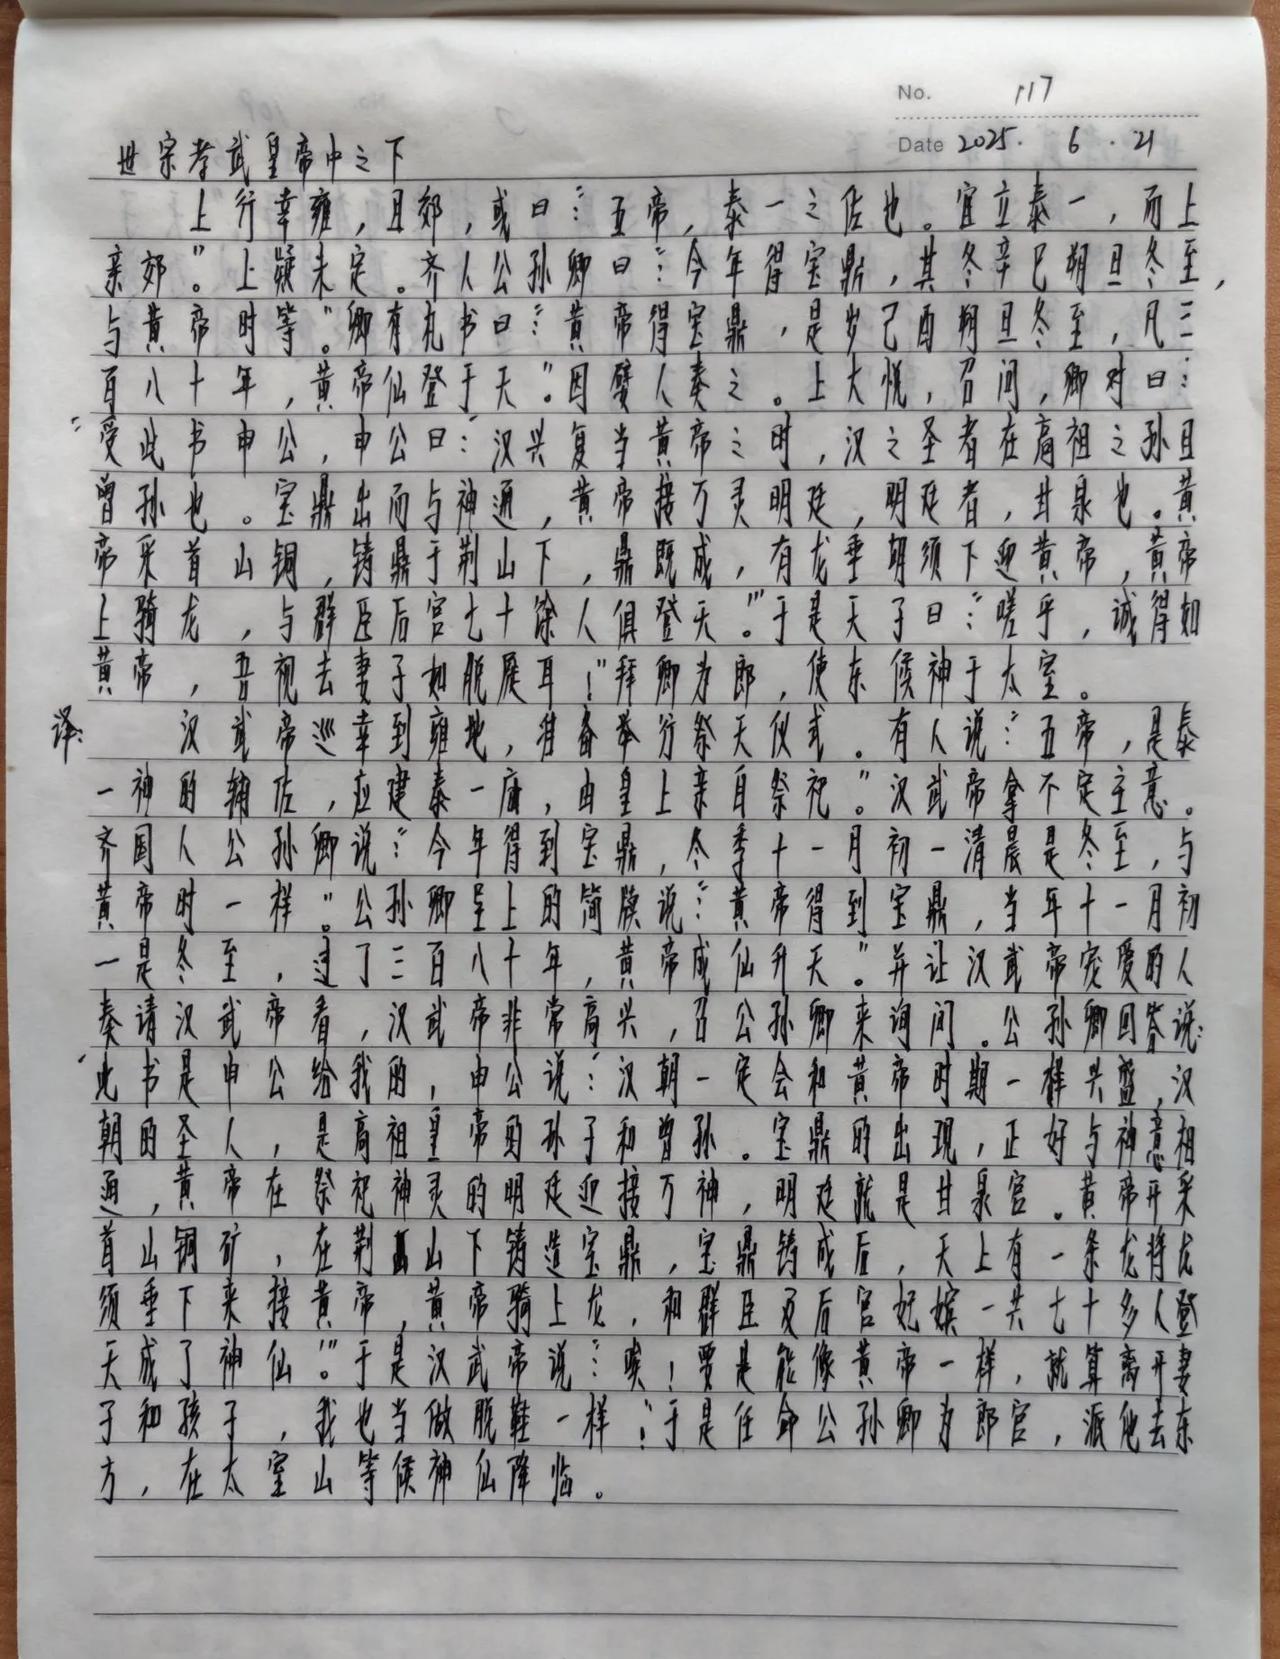 No. 117
Date 2025. 6. 21
世宗孝武皇帝中之下
上行幸雍，且郊，或曰：“五帝，泰一之佐也。宜立泰一，而上
亲郊。”上疑未定。齐人公孙卿曰：“今年得宝鼎，其冬辛巳朔旦冬至，
与黄帝时等。”卿有札书曰：“黄帝得宝鼎，是岁己酉朔旦冬至，凡三
百八十年，黄帝仙登于天。”因嬖人奏之。上大悦，召问，卿对曰：
“受此书申公，申公曰：“汉兴复当黄帝之时，汉之圣者在高祖之孙且
曾孙也。宝鼎出而与神通，黄帝接万灵明廷，明廷者，甘泉也。黄
帝采首山铜，铸鼎于荆山下，鼎既成，有龙垂胡须下迎黄帝，黄帝
上骑龙，与群臣后宫七十馀人俱登天。’”于是天子曰：“嗟乎，诚得如
黄帝，吾视去妻子如脱屣耳！”拜卿为郎，使东候神于太室。
译：汉武帝巡幸到雍地，准备举行祭天仪式。有人说：“五帝，是泰
一神的辅佐，应建泰一庙，由皇上亲自祭祀。”汉武帝拿不定主意。
齐国人公孙卿说：“今年得到宝鼎，冬季十一月初一清晨是冬至，与
黄帝时一样。”公孙卿呈上的简牍说：“黄帝得到宝鼎，当年十一月初
一是冬至，过了三百八十年，黄帝成仙升天。”并让汉武帝宠爱的人
奏请汉武帝看，汉武帝非常高兴，召公孙卿来询问。公孙卿回答说：
“此书是申公给我的，申公说：‘汉朝一定会和黄帝时期一样兴盛，汉
朝的圣人，是高祖皇帝的孙子和曾孙。宝鼎的出现，正好与神意相
通，黄帝在祭祀神灵的明廷迎接万神，明廷就是甘泉宫。黄帝开采
首山铜矿，在荆山下铸造宝鼎，宝鼎铸成后，天上有一条龙将龙
须垂下来接黄帝，黄帝骑上龙，和群臣及后宫妃嫔一共七十多人登
天成了神仙’”。于是汉武帝说：“唉！要是能像黄帝一样，就算离开妻
子和孩子，我也当做脱鞋一样！”于是任命公孙卿为郎官，派他去东
方，在太室山等候神仙降临。